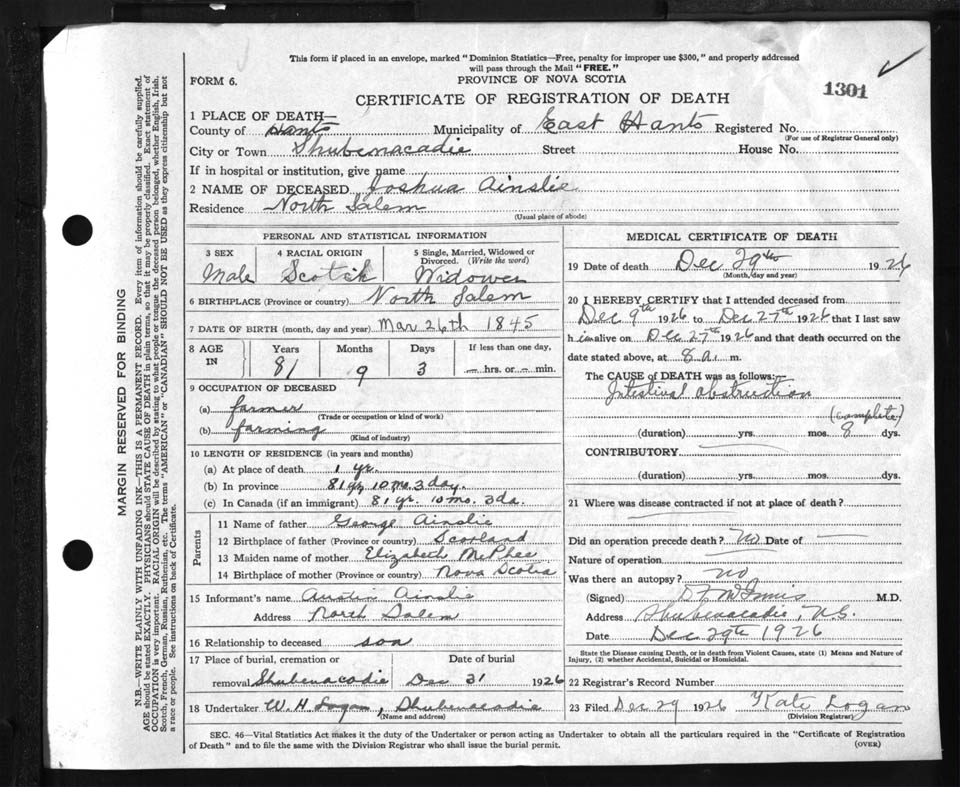 This form if placed in an envelope, marked "Dominion Statistics—Free, penalty for improper use $300," and properly addressed
will pass through the Mail "FREE."
FORM 6.
PROVINCE OF NOVA SCOTIA
1301
CERTIFICATE OF REGISTRATION OF DEATH
1 PLACE OF DEATH—
County of Hants Municipality of East Hants Registered No.
(For use of Registrar General only)
City or Town Shubenacadie Street House No.
If in hospital or institution, give name
2 NAME OF DECEASED Joshua Ainslie
Residence North Salem
(Usual place of abode)
PERSONAL AND STATISTICAL INFORMATION
3 SEX 4 RACIAL ORIGIN 5 Single, Married, Widowed or
Divorced. (Write the word)
Male Scotch Widower
6 BIRTHPLACE (Province or country) North Salem
7 DATE OF BIRTH (month, day and year) Mar 26th 1845
8 AGE IN Years Months Days If less than one day,
81 9 3 — hrs. or — min.
9 OCCUPATION OF DECEASED
(a) farmer
(Trade or occupation or kind of work)
(b) farming
(Kind of industry)
10 LENGTH OF RESIDENCE (in years and months)
(a) At place of death 1 yr.
(b) In province 81 yr 10 mo. 3 day.
(c) In Canada (if an immigrant) 81 yr. 10 mo. 3 da.
Parents
11 Name of father George Ainslie
12 Birthplace of father (Province or country) Scotland
13 Maiden name of mother Elizabeth McPhee
14 Birthplace of mother (Province or country) Nova Scotia
15 Informant's name Austin Ainslie
Address North Salem
16 Relationship to deceased son
17 Place of burial, cremation or Date of burial
removal Shubenacadie Dec 31 1926
18 Undertaker W. H. Logan, Shubenacadie
(Name and address)
MEDICAL CERTIFICATE OF DEATH
19 Date of death Dec 29th 1926
(Month, day and year)
20 I HEREBY CERTIFY that I attended deceased from
Dec 9th 1926 to Dec 27th 1926 that I last saw
h im alive on Dec 27th 1926 and that death occurred on the
date stated above, at 8 a. m.
The CAUSE of DEATH was as follows:—
Intestinal obstruction
(complete)
(duration) yrs. mos. 8 dys.
CONTRIBUTORY
(duration) yrs. mos. dys.
21 Where was disease contracted if not at place of death?
Did an operation precede death? No Date of —
Nature of operation
Was there an autopsy? no
(Signed) McInnis M.D.
Address Shubenacadie, N.S.
Date Dec 29th 1926
State the Disease causing Death, or in death from Violent Causes, state (1) Means and Nature of
Injury, (2) whether Accidental, Suicidal or Homicidal.
22 Registrar's Record Number
23 Filed Dec 29 1926 Kate Logan
(Division Registrar)
SEC. 46—Vital Statistics Act makes it the duty of the Undertaker or person acting as Undertaker to obtain all the particulars required in the "Certificate of Registration
of Death" and to file the same with the Division Registrar who shall issue the burial permit.
(OVER)
MARGIN RESERVED FOR BINDING
N.B.—WRITE PLAINLY WITH UNFADING INK—THIS IS A PERMANENT RECORD. Every item of information should be carefully supplied.
AGE should be stated EXACTLY. PHYSICIANS should STATE CAUSE OF DEATH in plain terms, so that it may be properly classified. Exact statement of
OCCUPATION is very important. RACIAL ORIGIN will be described by stating to what people or tongue the deceased person belonged, whether English, Irish,
Scotch, French, German, Russian, Ruthenian, etc. The terms "AMERICAN" or "CANADIAN" SHOULD NOT BE USED as they express citizenship but not
a race or people. See instructions on back of Certificate.